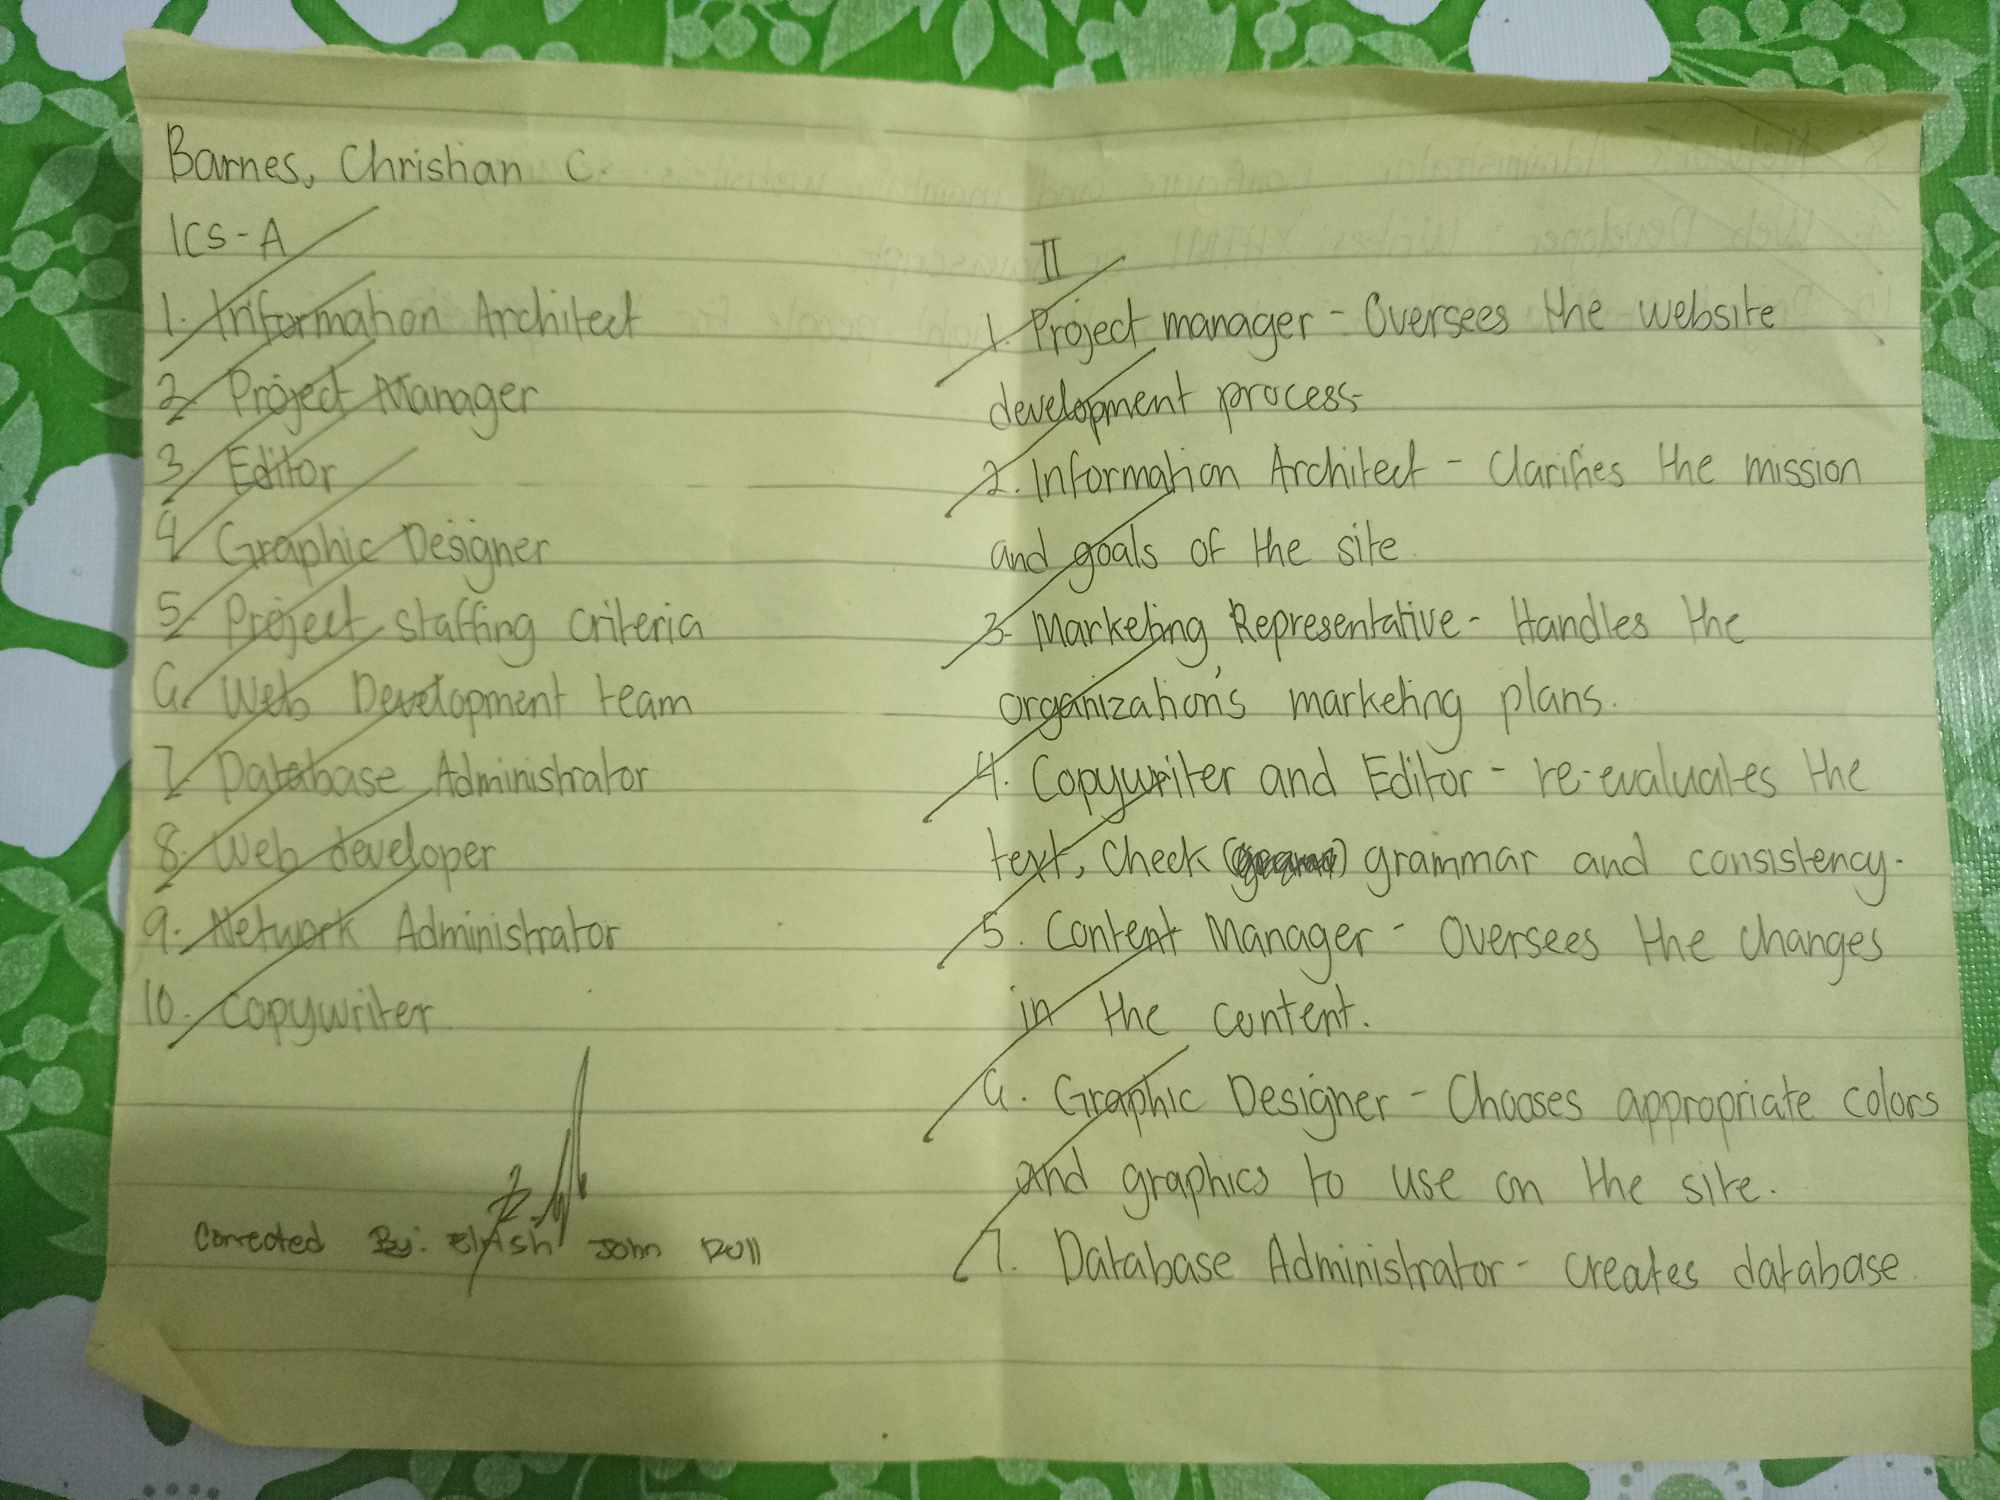 Barnes, Christian C.
1CS-A
1. Information Architect
2. Project Manager
3. Editor
4. Graphic Designer
5. Project staffing criteria
6. Web Development team
7. Database Administrator
8. Web developer
9. Network Administrator
10. Copywriter
Corrected By: John
II
1. Project manager - Oversees the website
development process.
2. Information Architect - Clarifies the mission
and goals of the site
3. Marketing Representative - Handles the
organization's marketing plans.
4. Copywriter and Editor - re-evaluates the
text, Check grammar and consistency.
5. Content Manager - Oversees the changes
in the content.
6. Graphic Designer - Chooses appropriate colors
and graphics to use on the site.
7. Database Administrator - creates database